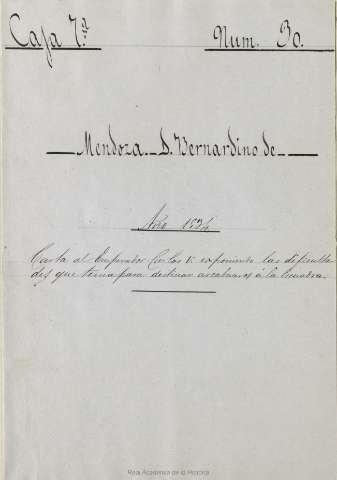 Caja 7.ª Num. 30.
Mendoza. D. Bernardino de
Año 1534
Carta al Emperador Carlos V. exponiendo las dificulta
des que tenia para destinar arcabuceros á la Escuadra.
Real Academia de la Historia